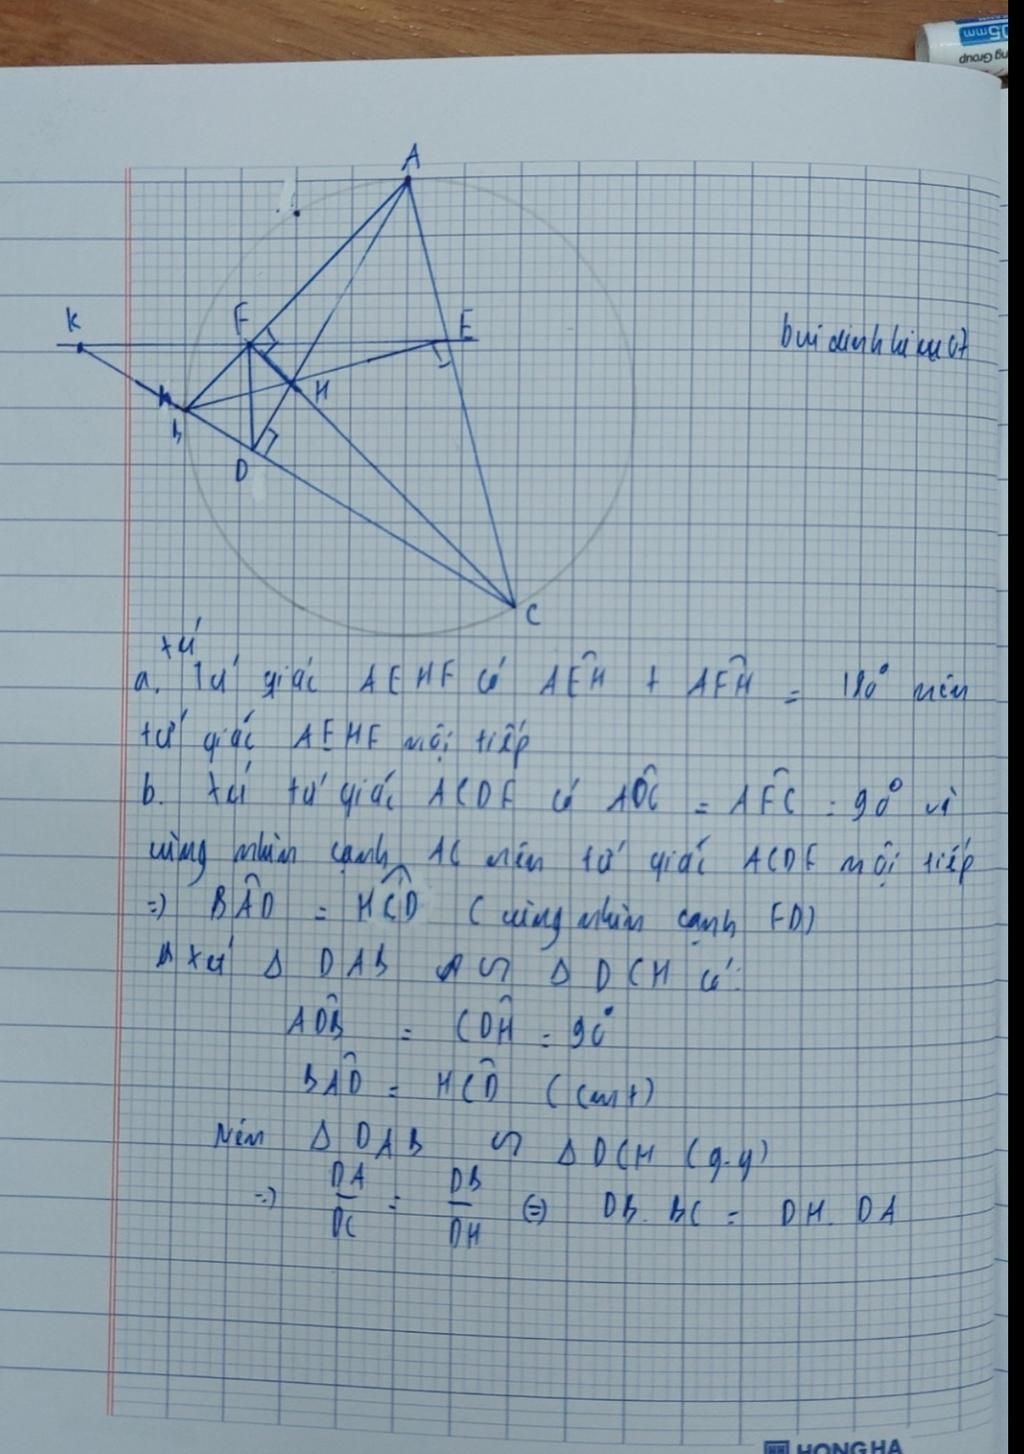 05mm
ng Group
A
K
F
E
H
B
D
C
xét
a. Tứ giác AEHF có AÊH + AF̂H = 180° nên
tứ giác AEHF nội tiếp
b. Xét tứ giác ACDF có AD̂C = AF̂C = 90° và
cùng nhìn cạnh AC nên tứ giác ACDF nội tiếp
=> BÂD = HĈD ( cùng nhìn cạnh FD)
xét Δ DAB ∽ Δ DCH có:
AD̂B = CD̂H = 90°
BÂD = HĈD ( cmt)
Nên Δ DAB ∽ Δ DCH (g.g)
=> DA/DC = DB/DH (=) DB. BC = DH. DA
HONG HA